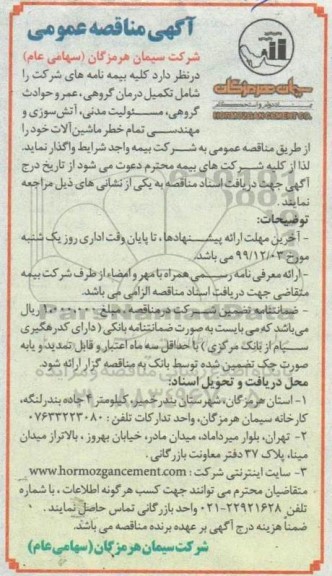 آگهی مناقصه عمومی
شرکت سیمان هرمزگان (سهامی عام)
درنظر دارد کلیه بیمه نامه های شرکت را
شامل تکمیل درمان گروهی، عمر و حوادث
گروهی، مسئولیت مدنی، آتش‌سوزی و
مهندسی تمام خطر ماشین آلات خود را
سیمان هرمزگان
HORMOZGAN CEMENT CO.
از طریق مناقصه عمومی به شرکت بیمه واجد شرایط واگذار نماید.
لذا از کلیه شرکت های بیمه محترم دعوت می شود از تاریخ درج
آگهی جهت دریافت اسناد مناقصه به یکی از نشانی های ذیل مراجعه
نمایند.
توضیحات:
- آخرین مهلت ارائه پیشنهادها، تا پایان وقت اداری روز یک شنبه
مورخ ۹۹/۱۲/۰۳ می باشد.
- ارائه معرفی نامه رسمی همراه با مهر و امضاء از طرف شرکت بیمه
متقاضی جهت دریافت اسناد مناقصه الزامی می باشد.
- ضمانتنامه تضمین شرکت در مناقصه مبلغ ریال
می‌باشد که می بایست به صورت ضمانتنامه بانکی (دارای کد رهگیری
سپام از بانک مرکزی) با حداقل سه ماه اعتبار و قابل تمدید و یا به
صورت چک تضمین شده توسط بانک به مناقصه گزار ارائه شود.
محل دریافت و تحویل اسناد:
۱- استان هرمزگان، شهرستان بندرخمیر، کیلومتر ۹ جاده بندرلنگه،
کارخانه سیمان هرمزگان، واحد تدارکات تلفن: ۰۷۶۳۳۲۲۳۰۸۰
۲- تهران، بلوار میرداماد، میدان مادر، خیابان بهروز، بالاتر از میدان
مینا، پلاک ۳۷ دفتر معاونت بازرگانی.
۳- سایت اینترنتی شرکت: www.hormozgancement.com
متقاضیان محترم می توانند جهت کسب هر گونه اطلاعات، با شماره
تلفن ۲۲۹۲۱۶۲۸-۰۲۱ واحد بازرگانی تماس حاصل نمایند.
ضمناً هزینه درج آگهی بر عهده برنده مناقصه می باشد.
شرکت سیمان هرمزگان (سهامی عام)